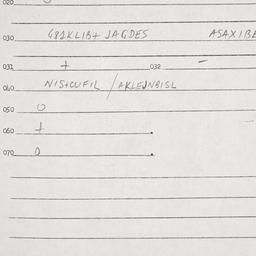 020
030 681KLIB+ JAGDES ASAXIBE
031 + 032 -
040 NIS+WFIL / AKLEJNBISL
050 0
060 +
070 0